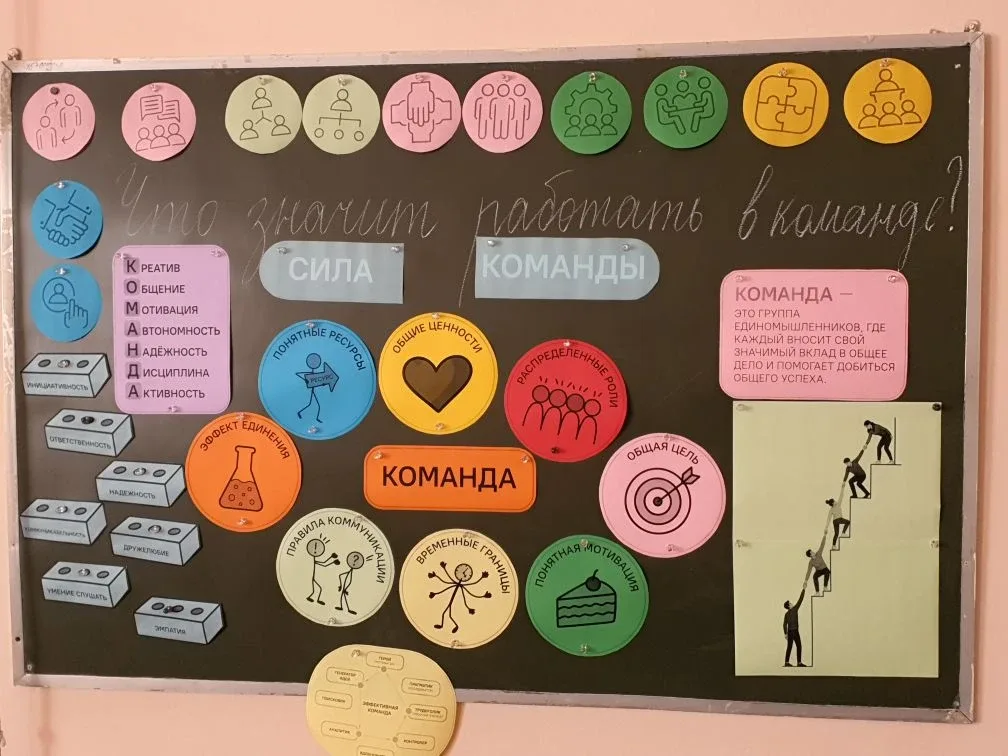 Что значит работать в команде?
СИЛА
КОМАНДЫ
КРЕАТИВ
ОБЩЕНИЕ
МОТИВАЦИЯ
АВТОНОМНОСТЬ
НАДЁЖНОСТЬ
ДИСЦИПЛИНА
АКТИВНОСТЬ
КОМАНДА —
ЭТО ГРУППА
ЕДИНОМЫШЛЕННИКОВ, ГДЕ
КАЖДЫЙ ВНОСИТ СВОЙ
ЗНАЧИМЫЙ ВКЛАД В ОБЩЕЕ
ДЕЛО И ПОМОГАЕТ ДОБИТЬСЯ
ОБЩЕГО УСПЕХА.
ПОНЯТНЫЕ РЕСУРСЫ
РЕСУРС
ОБЩИЕ ЦЕННОСТИ
РАСПРЕДЕЛЕННЫЕ РОЛИ
ЭФФЕКТ ЕДИНЕНИЯ
КОМАНДА
ОБЩАЯ ЦЕЛЬ
ПРАВИЛА КОММУНИКАЦИИ
ВРЕМЕННЫЕ ГРАНИЦЫ
ПОНЯТНАЯ МОТИВАЦИЯ
ИНИЦИАТИВНОСТЬ
ОТВЕТСТВЕННОСТЬ
НАДЕЖНОСТЬ
КОММУНИКАБЕЛЬНОСТЬ
ДРУЖЕЛЮБИЕ
УМЕНИЕ СЛУШАТЬ
ЭМПАТИЯ
ГЕНЕРАТОР
ИДЕЙ
ПОИСКОВИК
ЭФФЕКТИВНАЯ
КОМАНДА
ТРУДОГОЛИК
АНАЛИТИК
КОНТРОЛЕР